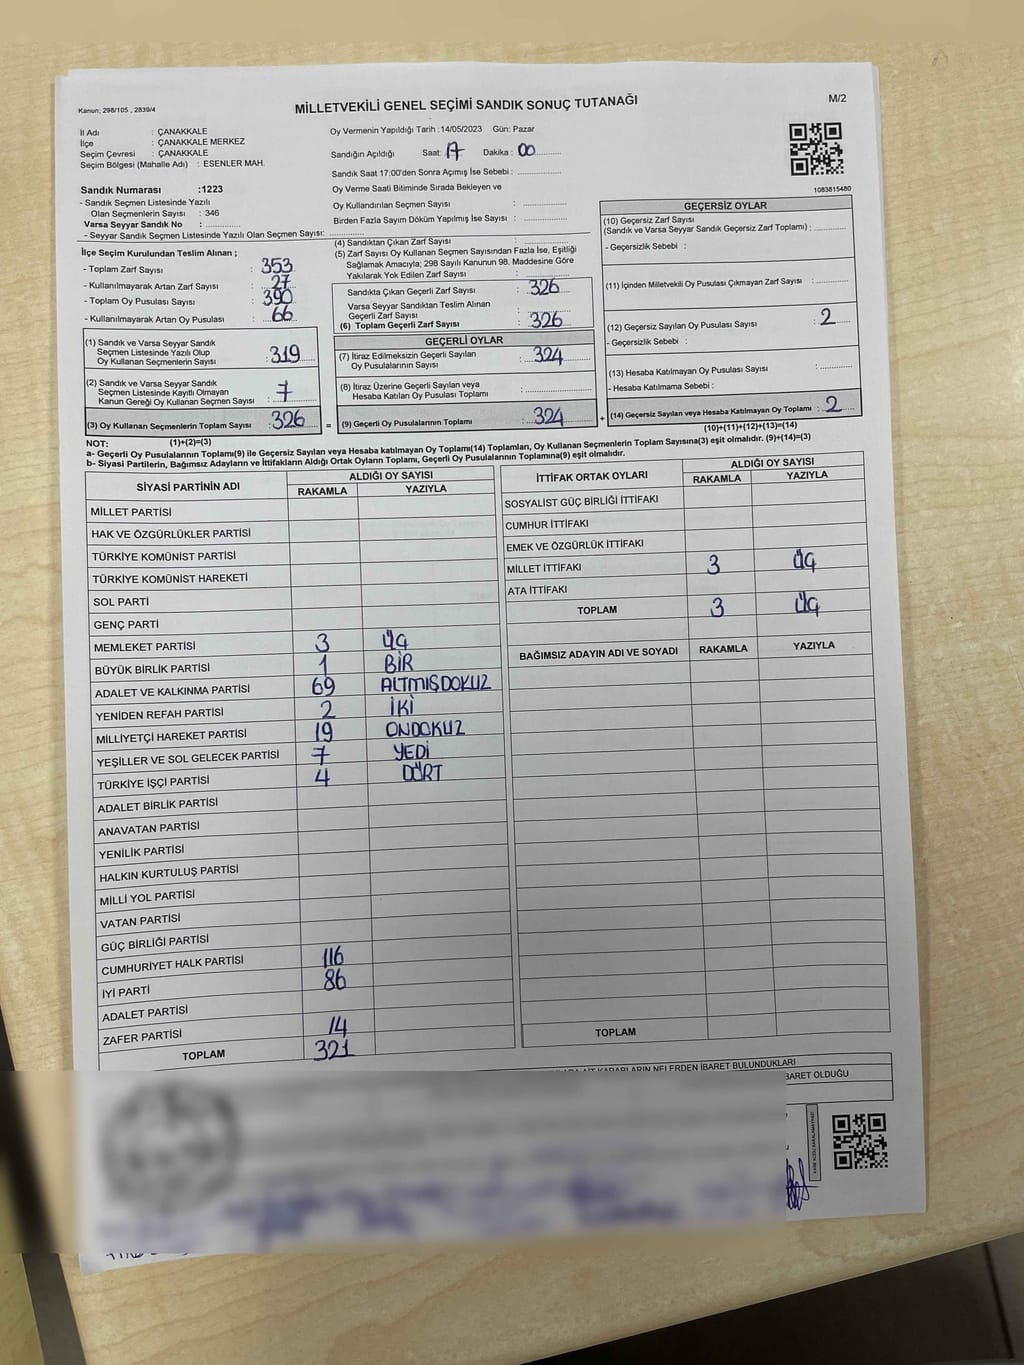 Kanun; 298/105 , 2839/4
MİLLETVEKİLİ GENEL SEÇİMİ SANDIK SONUÇ TUTANAĞI
M/2
İl Adı : ÇANAKKALE
İlçe : ÇANAKKALE MERKEZ
Seçim Çevresi : ÇANAKKALE
Seçim Bölgesi (Mahalle Adı) : ESENLER MAH.
Oy Vermenin Yapıldığı Tarih :14/05/2023 Gün: Pazar
Sandığın Açıldığı Saat: 17 Dakika : 00
Sandık Saat 17:00'den Sonra Açımış İse Sebebi :
Oy Verme Saati Bitiminde Sırada Bekleyen ve
Oy Kullandırılan Seçmen Sayısı :
Birden Fazla Sayım Döküm Yapılmış İse Sayısı :
1083815480
Sandık Numarası :1223
- Sandık Seçmen Listesinde Yazılı
Olan Seçmenlerin Sayısı : 346
Varsa Seyyar Sandık No :
- Seyyar Sandık Seçmen Listesinde Yazılı Olan Seçmen Sayısı:
İlçe Seçim Kurulundan Teslim Alınan ;
- Toplam Zarf Sayısı : 353
- Kullanılmayarak Artan Zarf Sayısı : 27
- Toplam Oy Pusulası Sayısı : 390
- Kullanılmayarak Artan Oy Pusulası : 66
(1) Sandık ve Varsa Seyyar Sandık
Seçmen Listesinde Yazılı Olup
Oy Kullanan Seçmenlerin Sayısı : 319
(2) Sandık ve Varsa Seyyar Sandık
Seçmen Listesinde Kayıtlı Olmayan
Kanun Gereği Oy Kullanan Seçmen Sayısı : 7
(3) Oy Kullanan Seçmenlerin Toplam Sayısı : 326
(4) Sandıktan Çıkan Zarf Sayısı :
(5) Zarf Sayısı Oy Kullanan Seçmen Sayısından Fazla İse, Eşitliği
Sağlamak Amacıyla; 298 Sayılı Kanunun 98. Maddesine Göre
Yakılarak Yok Edilen Zarf Sayısı :
Sandıkta Çıkan Geçerli Zarf Sayısı : 326
Varsa Seyyar Sandıktan Teslim Alınan
Geçerli Zarf Sayısı :
(6) Toplam Geçerli Zarf Sayısı : 326
GEÇERLİ OYLAR
(7) İtiraz Edilmeksizin Geçerli Sayılan
Oy Pusulalarının Sayısı : 324
(8) İtiraz Üzerine Geçerli Sayılan veya
Hesaba Katılan Oy Pusulası Toplamı :
= (9) Geçerli Oy Pusulalarının Toplamı : 324 +
GEÇERSİZ OYLAR
(10) Geçersiz Zarf Sayısı
(Sandık ve Varsa Seyyar Sandık Geçersiz Zarf Toplamı) :
- Geçersizlik Sebebi :
(11) İçinden Milletvekili Oy Pusulası Çıkmayan Zarf Sayısı :
(12) Geçersiz Sayılan Oy Pusulası Sayısı : 2
- Geçersizlik Sebebi :
(13) Hesaba Katılmayan Oy Pusulası Sayısı :
- Hesaba Katılmama Sebebi :
(14) Geçersiz Sayılan veya Hesaba Katılmayan Oy Toplamı : 2
NOT: (1)+(2)=(3)
(10)+(11)+(12)+(13)=(14)
a- Geçerli Oy Pusulasının Toplamı(9) ile Geçersiz Sayılan veya Hesaba katılmayan Oy Toplamı(14) Toplamları, Oy Kullanan Seçmenlerin Toplam Sayısına(3) eşit olmalıdır. (9)+(14)=(3)
b- Siyasi Partilerin, Bağımsız Adayların ve İttifakların Aldığı Ortak Oyların Toplamı, Geçerli Oy Pusulalarının Toplamına(9) eşit olmalıdır.
SİYASİ PARTİNİN ADI ALDIĞI OY SAYISI
RAKAMLA YAZIYLA
MİLLET PARTİSİ
HAK VE ÖZGÜRLÜKLER PARTİSİ
TÜRKİYE KOMÜNİST PARTİSİ
TÜRKİYE KOMÜNİST HAREKETİ
SOL PARTİ
GENÇ PARTİ
MEMLEKET PARTİSİ 3 ÜÇ
BÜYÜK BİRLİK PARTİSİ 1 BİR
ADALET VE KALKINMA PARTİSİ 69 ALTMIŞDOKUZ
YENİDEN REFAH PARTİSİ 2 İKİ
MİLLİYETÇİ HAREKET PARTİSİ 19 ONDOKUZ
YEŞİLLER VE SOL GELECEK PARTİSİ 7 YEDİ
TÜRKİYE İŞÇİ PARTİSİ 4 DÖRT
ADALET BİRLİK PARTİSİ
ANAVATAN PARTİSİ
YENİLİK PARTİSİ
HALKIN KURTULUŞ PARTİSİ
MİLLİ YOL PARTİSİ
VATAN PARTİSİ
GÜÇ BİRLİĞİ PARTİSİ
CUMHURİYET HALK PARTİSİ 116
İYİ PARTİ 86
ADALET PARTİSİ
ZAFER PARTİSİ 14
TOPLAM 321
İTTİFAK ORTAK OYLARI ALDIĞI OY SAYISI
RAKAMLA YAZIYLA
SOSYALİST GÜÇ BİRLİĞİ İTTİFAKI
CUMHUR İTTİFAKI
EMEK VE ÖZGÜRLÜK İTTİFAKI
MİLLET İTTİFAKI 3 ÜÇ
ATA İTTİFAKI
TOPLAM 3 ÜÇ
BAĞIMSIZ ADAYIN ADI VE SOYADI RAKAMLA YAZIYLA
TOPLAM
KARARLARIN NELERDEN İBARET BULUNDUKLARI
BARET OLDUĞU